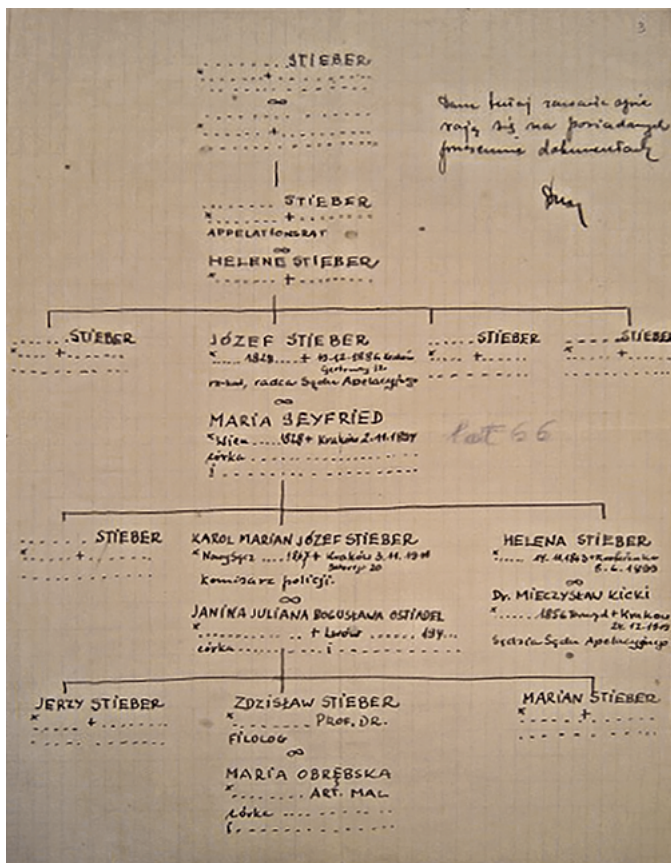 3
......... STIEBER
* ......... + .........
∞
* ......... + .........
Dam tutaj
się na posiadanych
dokumentach
......... STIEBER
* ......... + .........
APPELATIONSRAT
∞
HELENE STIEBER
* ......... + .........
...... STIEBER
* ..... + ......
JÓZEF STIEBER
* ..... 1829 ..... + 19.12.1886 Kraków
radca Sądu Apelacyjnego
∞
MARIA SEYFRIED
* Wien ..... 1828 + Kraków 2.11.1894
córka .........
i .........
..... STIEBER
* ..... + ......
..... STIEBER
* ..... + ......
lat 66
...... STIEBER
* ..... + ......
KAROL MARIAN JÓZEF STIEBER
* Nowy Sącz ..... 1867 + Kraków 3.11.19
komisarz policji.
∞
JANINA JULIANA BOGUSŁAWA OSTIADEL
* ......... + Lwów ...... 194...
córka ......... i .........
HELENA STIEBER
* ..... 
∞
Dr. MIECZYSŁAW KICKI
* ..... 1856 + Kraków
Sędzia Sądu Apelacyjnego
JERZY STIEBER
* ..... + ......
ZDZISŁAW STIEBER
* ......... PROF. DR.
FILOLOG
∞
MARIA OBRĘBSKA
* ......... ART. MAL
córka .........
i .........
MARIAN STIEBER
* ..... + ......